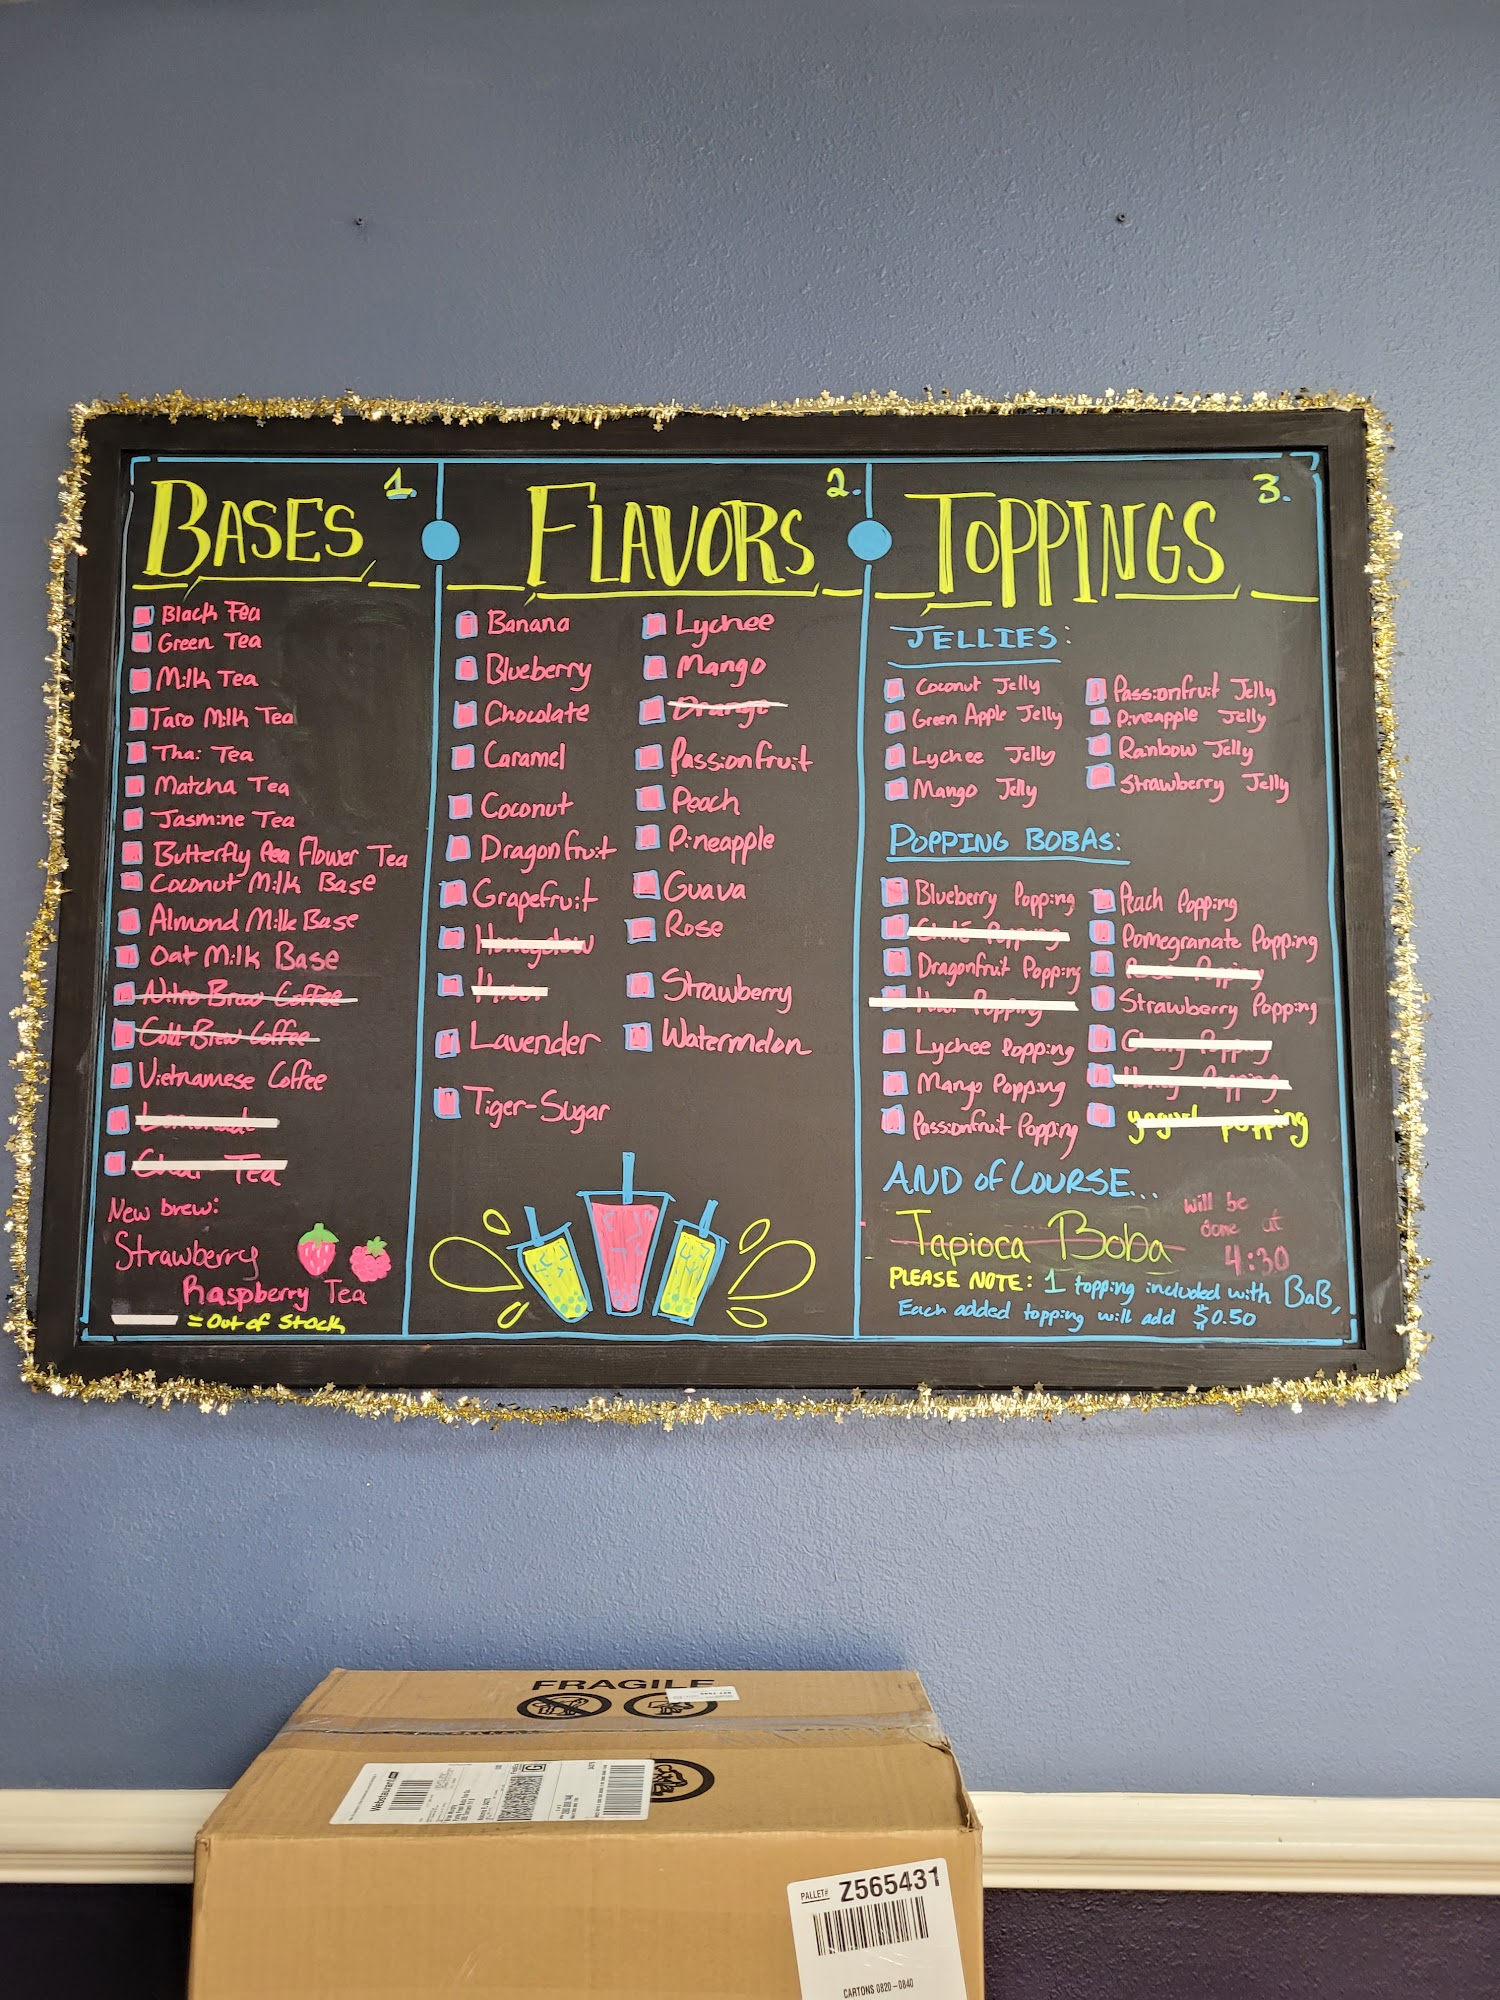 1.
BASES
Black Tea
Green Tea
Milk Tea
Taro Milk Tea
Thai Tea
Matcha Tea
Jasmine Tea
Butterfly Pea Flower Tea
Coconut Milk Base
Almond Milk Base
Oat Milk Base
Nitro Brew Coffee
Cold Brew Coffee
Vietnamese Coffee
Lemonade
Chai Tea
New brew:
Strawberry
Raspberry Tea
= Out of Stock
2.
FLAVORS
Banana
Blueberry
Chocolate
Caramel
Coconut
Dragonfruit
Grapefruit
Honeydew
Lavender
Tiger-Sugar
Lychee
Mango
Orange
Passionfruit
Peach
Pineapple
Guava
Rose
Strawberry
Watermelon
3.
TOPPINGS
JELLIES:
Coconut Jelly
Green Apple Jelly
Lychee Jelly
Mango Jelly
Passionfruit Jelly
Pineapple Jelly
Rainbow Jelly
Strawberry Jelly
POPPING BOBAS:
Blueberry Popping
Popping
Dragonfruit Popping
Popping
Lychee Popping
Mango Popping
Passionfruit Popping
Peach Popping
Pomegranate Popping
Popping
Strawberry Popping
Cherry Popping
Honey Popping
yogurt popping
AND OF COURSE...
Tapioca Boba
will be
done at
4:30
PLEASE NOTE: 1 topping included with BaB,
Each added topping will add $0.50
FRAGILE
Webstaurant
PALLET# Z565431
CARTONS 0820-0840